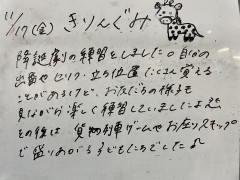 11/17(金) きりんぐみ
降誕劇の練習をしました。自分の
出番やセリフ・立ち位置 たくさん覚える
ことがあるけど、お友だちの様子も
見ながら楽しく練習していましたよ
その後は 貨物列車ゲームやお座りスキップ
で盛りあがる子どもたちでした♪